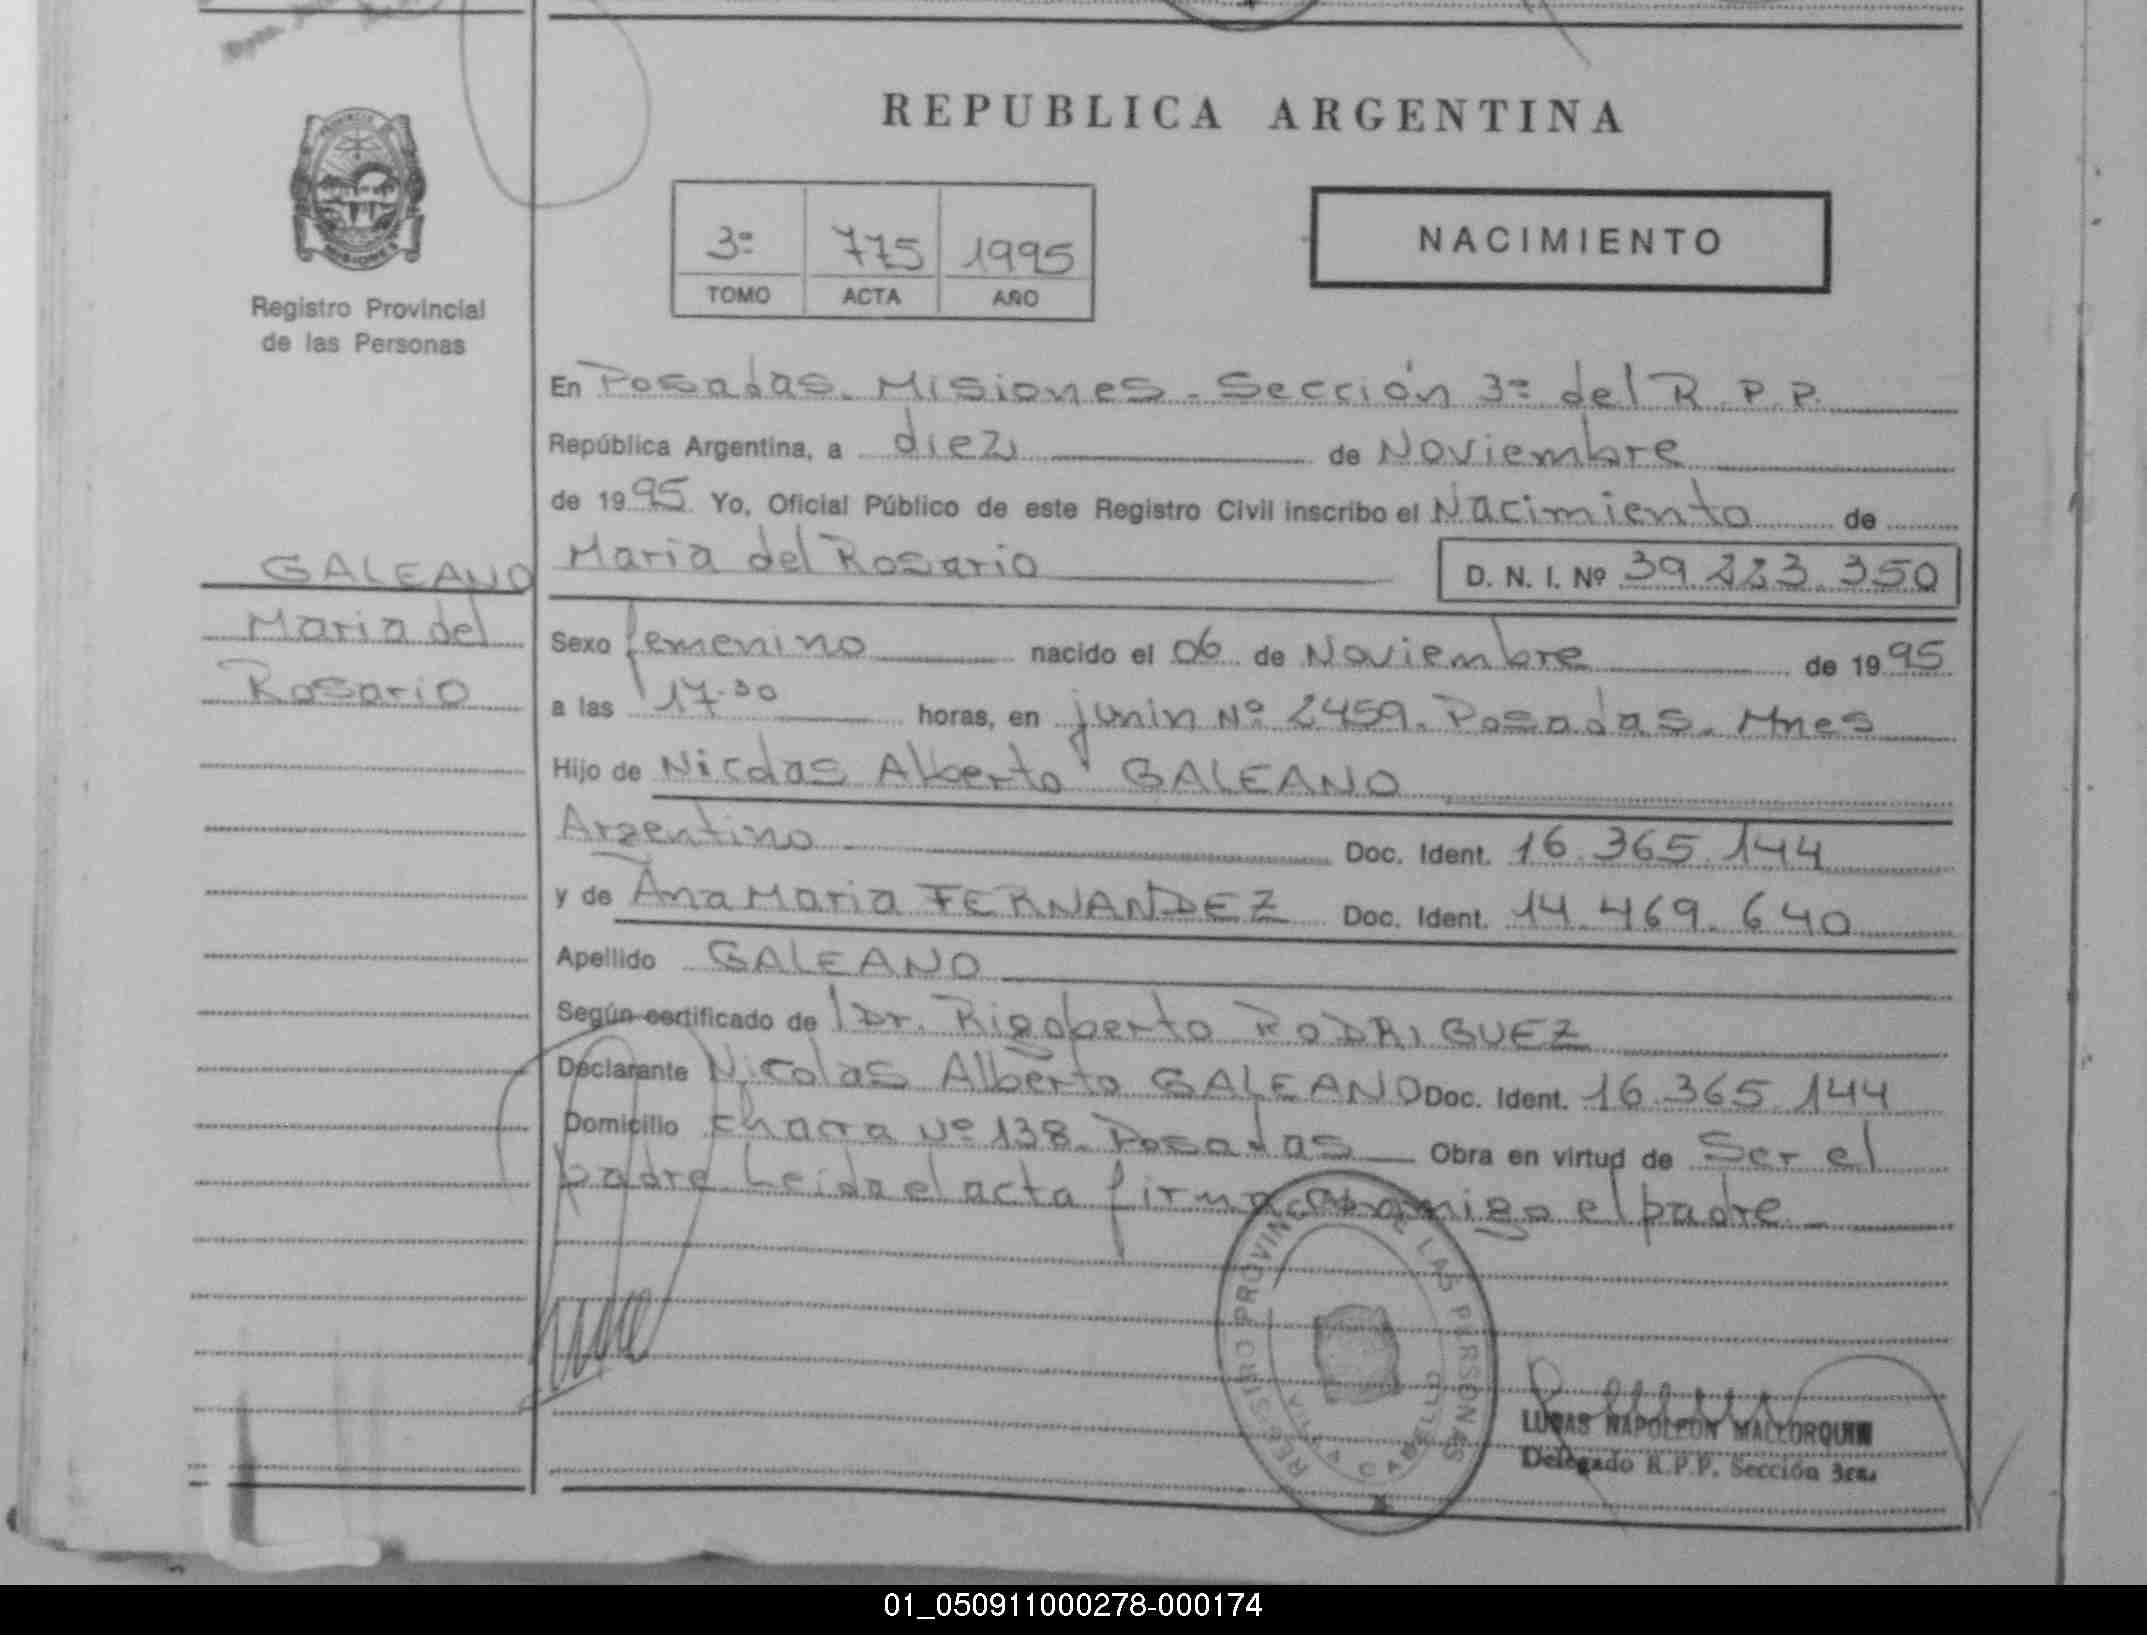 REPUBLICA ARGENTINA
PROVINCIA
MISIONES
Registro Provincial
de las Personas
3ª 775 1995
TOMO ACTA AÑO
NACIMIENTO
En Posadas. Misiones - Sección 3ª del R.P.P.
República Argentina, a diez de Noviembre
de 1995 Yo, Oficial Público de este Registro Civil inscribo el Nacimiento de
Maria del Rosario D. N. I. Nº 39.223.350
GALEANO
Maria del
Rosario
Sexo femenino nacido el 06 de Noviembre de 1995
a las 17.30 horas, en junin Nº 2459. Posadas. Mnes
Hijo de Nicolas Alberto GALEANO
Argentino Doc. Ident. 16.365.144
y de Ana Maria FERNANDEZ Doc. Ident. 14.469.640
Apellido GALEANO
Según certificado de Dr. Rigoberto RODRIGUEZ
Declarante Nicolas Alberto GALEANO Doc. Ident. 16.365.144
Domicilio Chacra Nº 138. Posadas Obra en virtud de Ser el
padre Leida el acta firma conmigo el padre
REGISTRO PROVINCIAL DE LAS PERSONAS
VILLA CABELLO
LUCAS NAPOLEON MALLORQUIN
Delegado R.P.P. Sección 3ra.
01_050911000278-000174